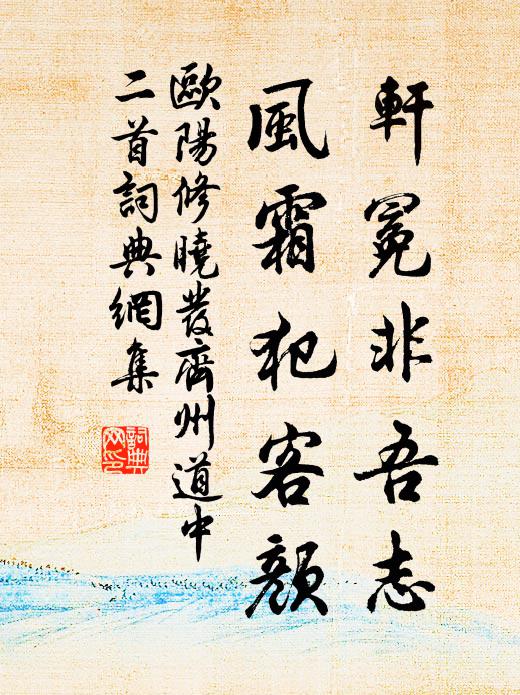 軒冕非吾志
風霜犯客顏
歐陽修曉發齊州道中
二首詞典網集
詞典
網印